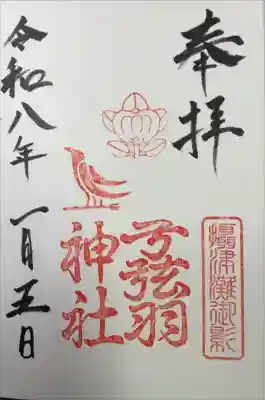 奉拝
攝津灘御影
弓弦羽
神社
令和八年
一月五日